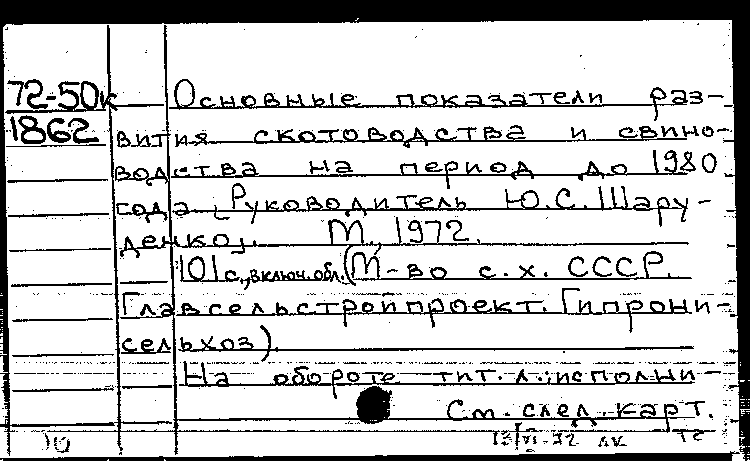 72-50к Основные показатели раз-
1862 вития скотоводства и свино-
водства на период до 1980
года. [Руководитель Ю.С. Шару-
денко]. М., 1972.
101 с., включ. обл. (М-во с.х. СССР.
Главсельстройпроект. Гипрони-
сельхоз).
На обороте тит. л.: исполни-
См. след. карт.
13/VI-72 ЛК